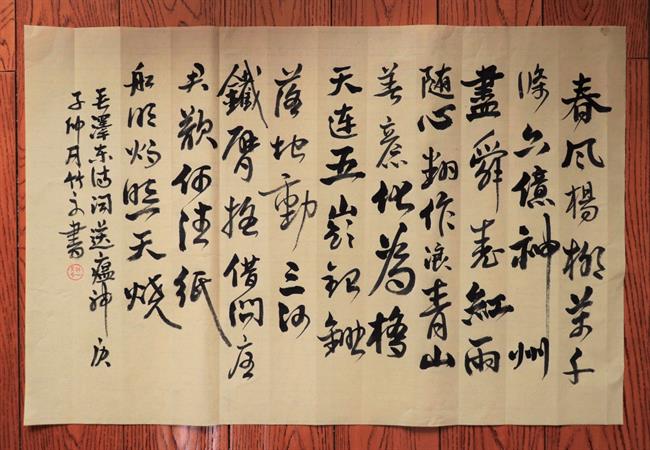 春风楊柳萬千
條六億神州
盡舜尧紅雨
随心翻作浪青山
着意化為橋
天连五嶺銀鋤
落地動三河
鐵臂摇借問瘟
君欲何往纸
船明烛照天烧
毛澤东诗词送瘟神 庚
子仲月竹文書